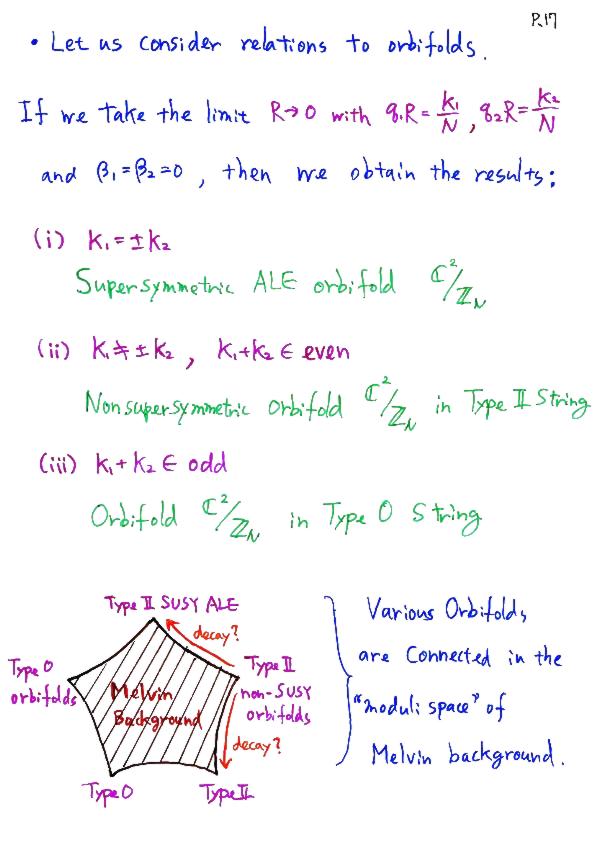 P.17
• Let us consider relations to orbifolds.
If we take the limit R→0 with q₁R = k₁/N , q₂R = k₂/N
and β₁=β₂=0 , then we obtain the results:
(i) k₁=±k₂
Supersymmetric ALE orbifold ℂ²/ℤ_N
(ii) k₁≠±k₂ , k₁+k₂ ∈ even
Nonsupersymmetric orbifold ℂ²/ℤ_N in Type II String
(iii) k₁+k₂ ∈ odd
Orbifold ℂ²/ℤ_N in Type 0 String
Type II SUSY ALE
decay?
Type 0
orbifolds
Type II
non-SUSY
orbifolds
Melvin
Background
decay?
Type 0
Type II
Various Orbifolds
are Connected in the
"moduli space" of
Melvin background.